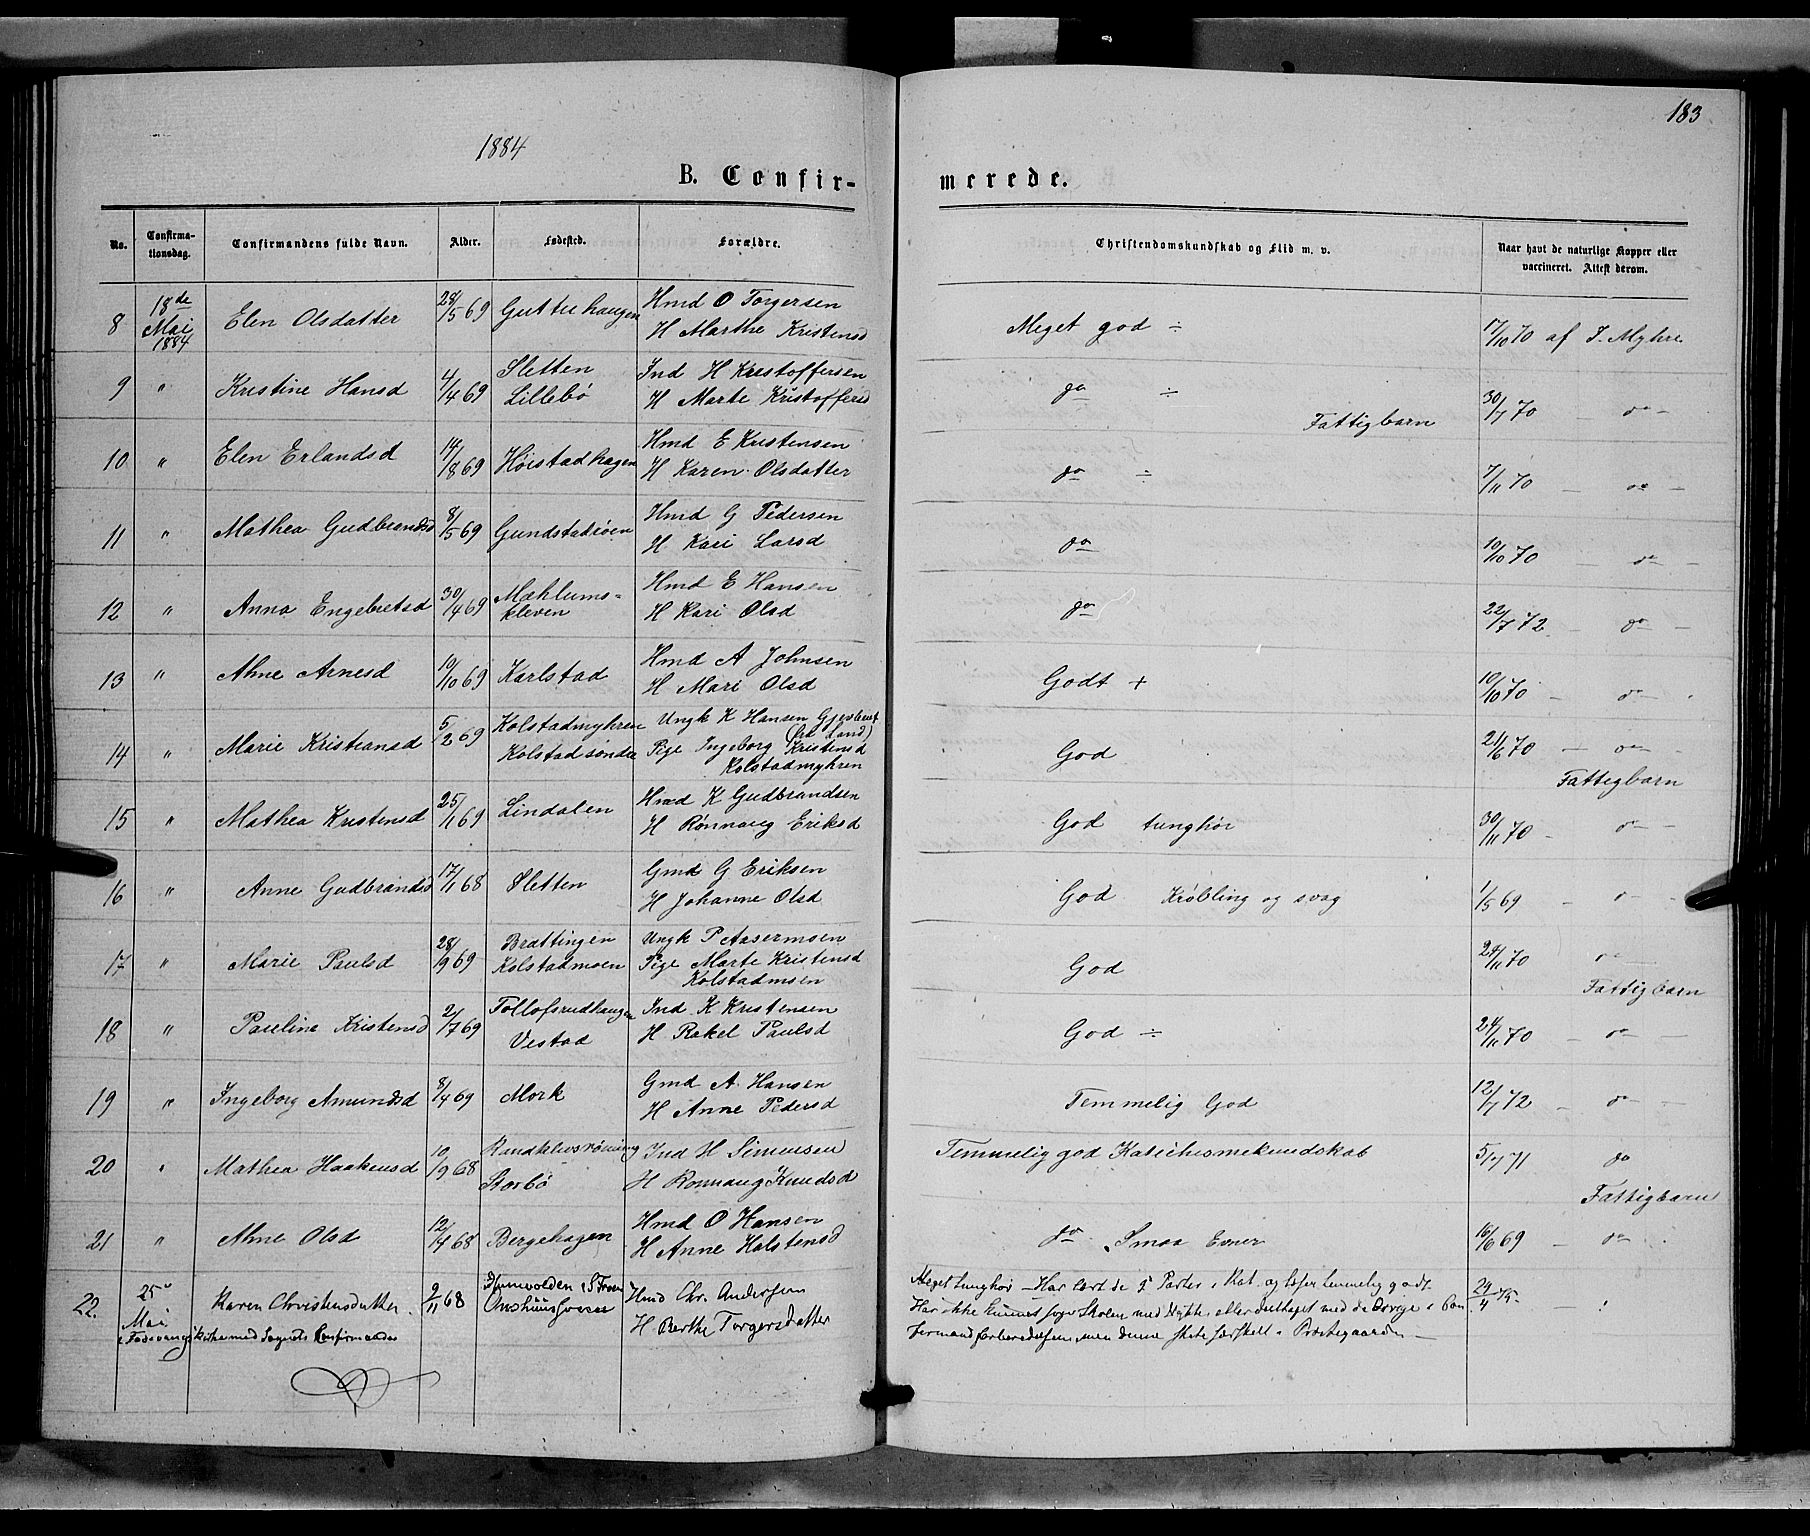 183
1884
B. Confirmerede.
No. Confirmationsdag. Confirmandens fulde Navn. Alder. Fødested. Forældre. Christendomskundskab og Flid m. v. Naar havt de naturlige Kopper eller vaccineret. Attest derom.
8 18de Mai 1884 Elen Olsdatter 28/5 69 Guttuhaugen Hmd O Torgersen H Marthe Kristensd Meget god ÷ 17/10 70 af J. Myhre
9 " Kristine Hansd 4/4 69 Sletten Lillebø Ind H Kristoffersen H Marte Kristoffersd do ÷ Fattigbarn 30/7 70 – do –
10 " Elen Erlandsd 14/8 69 Høistadhagen Hmd E Kristensen H Karen Olsdatter do ÷ 7/11 70 – do –
11 " Mathea Gudbrandsd 8/5 69 Gundstadrøen Hmd G Pedersen H Kari Larsd do 10/10 70 – do –
12 " Anna Engebretsd 30/4 69 Mæhlums=kleven Hmd E Hansen H Kari Olsd do 22/7 72 – do –
13 " Ahne Arnesd 10/10 69 Karlstad Hmd A Johnsen H Mari Olsd Godt + 10/10 70 – do –
14 " Marie Kristiansd 5/2 69 Kolstadmyhren Kolstadsøndre Ungk K Hansen (fra Land) Pige Ingeborg Kristensd Kolstadmyhren God 21/6 70 – do – Fattigbarn
15 " Mathea Kristensd 25/1 69 Lindalen Hmd K Gudbrandsen H Rønnaug Eriksd God tunghør 30/11 70 – do –
16 " Anne Gudbrandsd 17/1 68 Sletten Gmd G Eriksen H Johanne Olsd God Krøbling og svag 1/5 69 – do –
17 " Marie Paulsd 28/9 69 Brættingen Kolstadmoen Ungk P Aasermoen Pige Marte Kristensd Kolstadmoen God 24/11 70 do Fattigbarn
18 " Pauline Kristensd 2/7 69 Tollofsrudhaugen Vestad Ind K Kristensen H Rakel Paulsd God ÷ 24/11 70 – do –
19 " Ingeborg Amundsd 8/4 69 Mork Gmd A. Hansen H Anne Pedersd Temmelig God 12/7 72 – do –
20 " Mathea Haakensd 10/9 68 Randklevsrøning Storbø Ind H Simensen H Rønnaug Knudsd Temmelig god Katechesmekundskab 5/7 71 do Fattigbarn
21 " Ahne Olsd 12/4 68 Bergehagen Hmd O Hansen H Anne Holstensd do Smaa Evner 16/6 69 – do –
22. 25de Mai Karen Christensdatter. 2/11 68 i S Fron Hmd Chr. Andersen H. Berthe Torgersdatter Meget tunghør – Har lært de 2 Parter i Kat. og læser temmelig godt. 29/4 75.
Har ikke kunnet søge Skolen med Nytte, eller deeltaget med de Øvrige i Con
firmandforberedelsen, men denne skete særskilt i Præstegaarden –
kirke med Sognets Confirmander